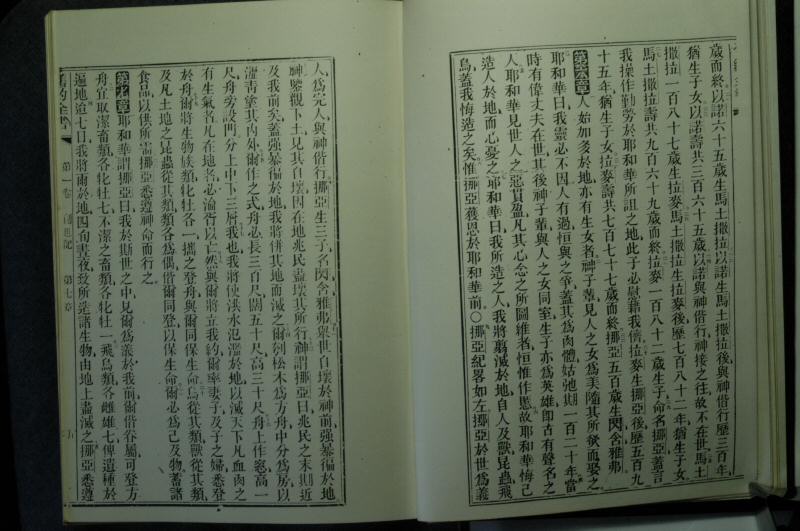 歲而終以諾六十五歲生馬土撒拉以諾生馬土撒拉後與神偕行歷三百年
猶生子女以諾壽共三百六十五歲以諾與神偕行神接之往故不在世馬土
撒拉一百八十七歲生拉麥馬土撒拉生拉麥後歷七百八十二年猶生子女
馬土撒拉壽共九百六十九歲而終拉麥一百八十二歲生子命名挪亞蓋言
我操作勤勞於耶和華所詛之地此子必慰藉我儕拉麥生挪亞後歷五百九
十五年猶生子女拉麥壽共七百七十七歲而終挪亞五百歲生閃含雅弗
第六章人始加多於地亦有生女者神子輩見人之女爲美隨其所欲而娶之
耶和華曰我靈必不因人有過恒與之爭蓋其爲肉體姑弛期一百二十年當
時有偉丈夫在世其後神子輩與人之女同室生子亦爲英雄卽古有聲名之
人耶和華見世人之惡貫盈凡其心念之所圖維者恒惟作慝故耶和華悔己
造人於地而心憂之耶和華曰我所造之人我將翦滅於地自人及獸昆蟲飛
鳥蓋我悔造之矣惟挪亞獲恩於耶和華前〇挪亞紀畧如左挪亞於世爲義
人爲完人與神偕行挪亞生三子名閃含雅弗舉世自壞於神前強暴徧於地
神鑒觀下土見其自壞因在地兆民盡壞其所行神謂挪亞曰兆民之末期近
及我前矣蓋強暴徧於地我將併其地而滅之爾刳松木爲方舟中分爲房以
瀝青塗其內外爾作之式舟必長三百尺闊五十尺高三十尺舟上作窓高一
尺舟旁設門分上中下三層我也我將使洪水氾濫於地以滅天下凡血肉之
有生氣者凡在地者必淪胥以亡然與爾將立我約爾率妻子及子之婦悉登
於舟爾將生物候類牝牡各一攜之登舟與爾同保生命鳥從其類獸從其類
及凡土地之昆蟲從其類類各爲偶偕爾同登以保生命爾必爲己及物蓄諸
食品以供所需挪亞悉遵神命而行之
第七章耶和華謂挪亞曰我於斯世之中見爾爲義於我前爾偕眷屬可登方
舟宜取潔畜類各牝牡七不潔之畜類各牝牡一飛鳥類各雌雄七俾遺種於
遍地迨七日我將雨於地四旬晝夜致所造諸生物由地上盡滅之挪亞悉遵
舊約全書 第一卷 創世記 第七章 五